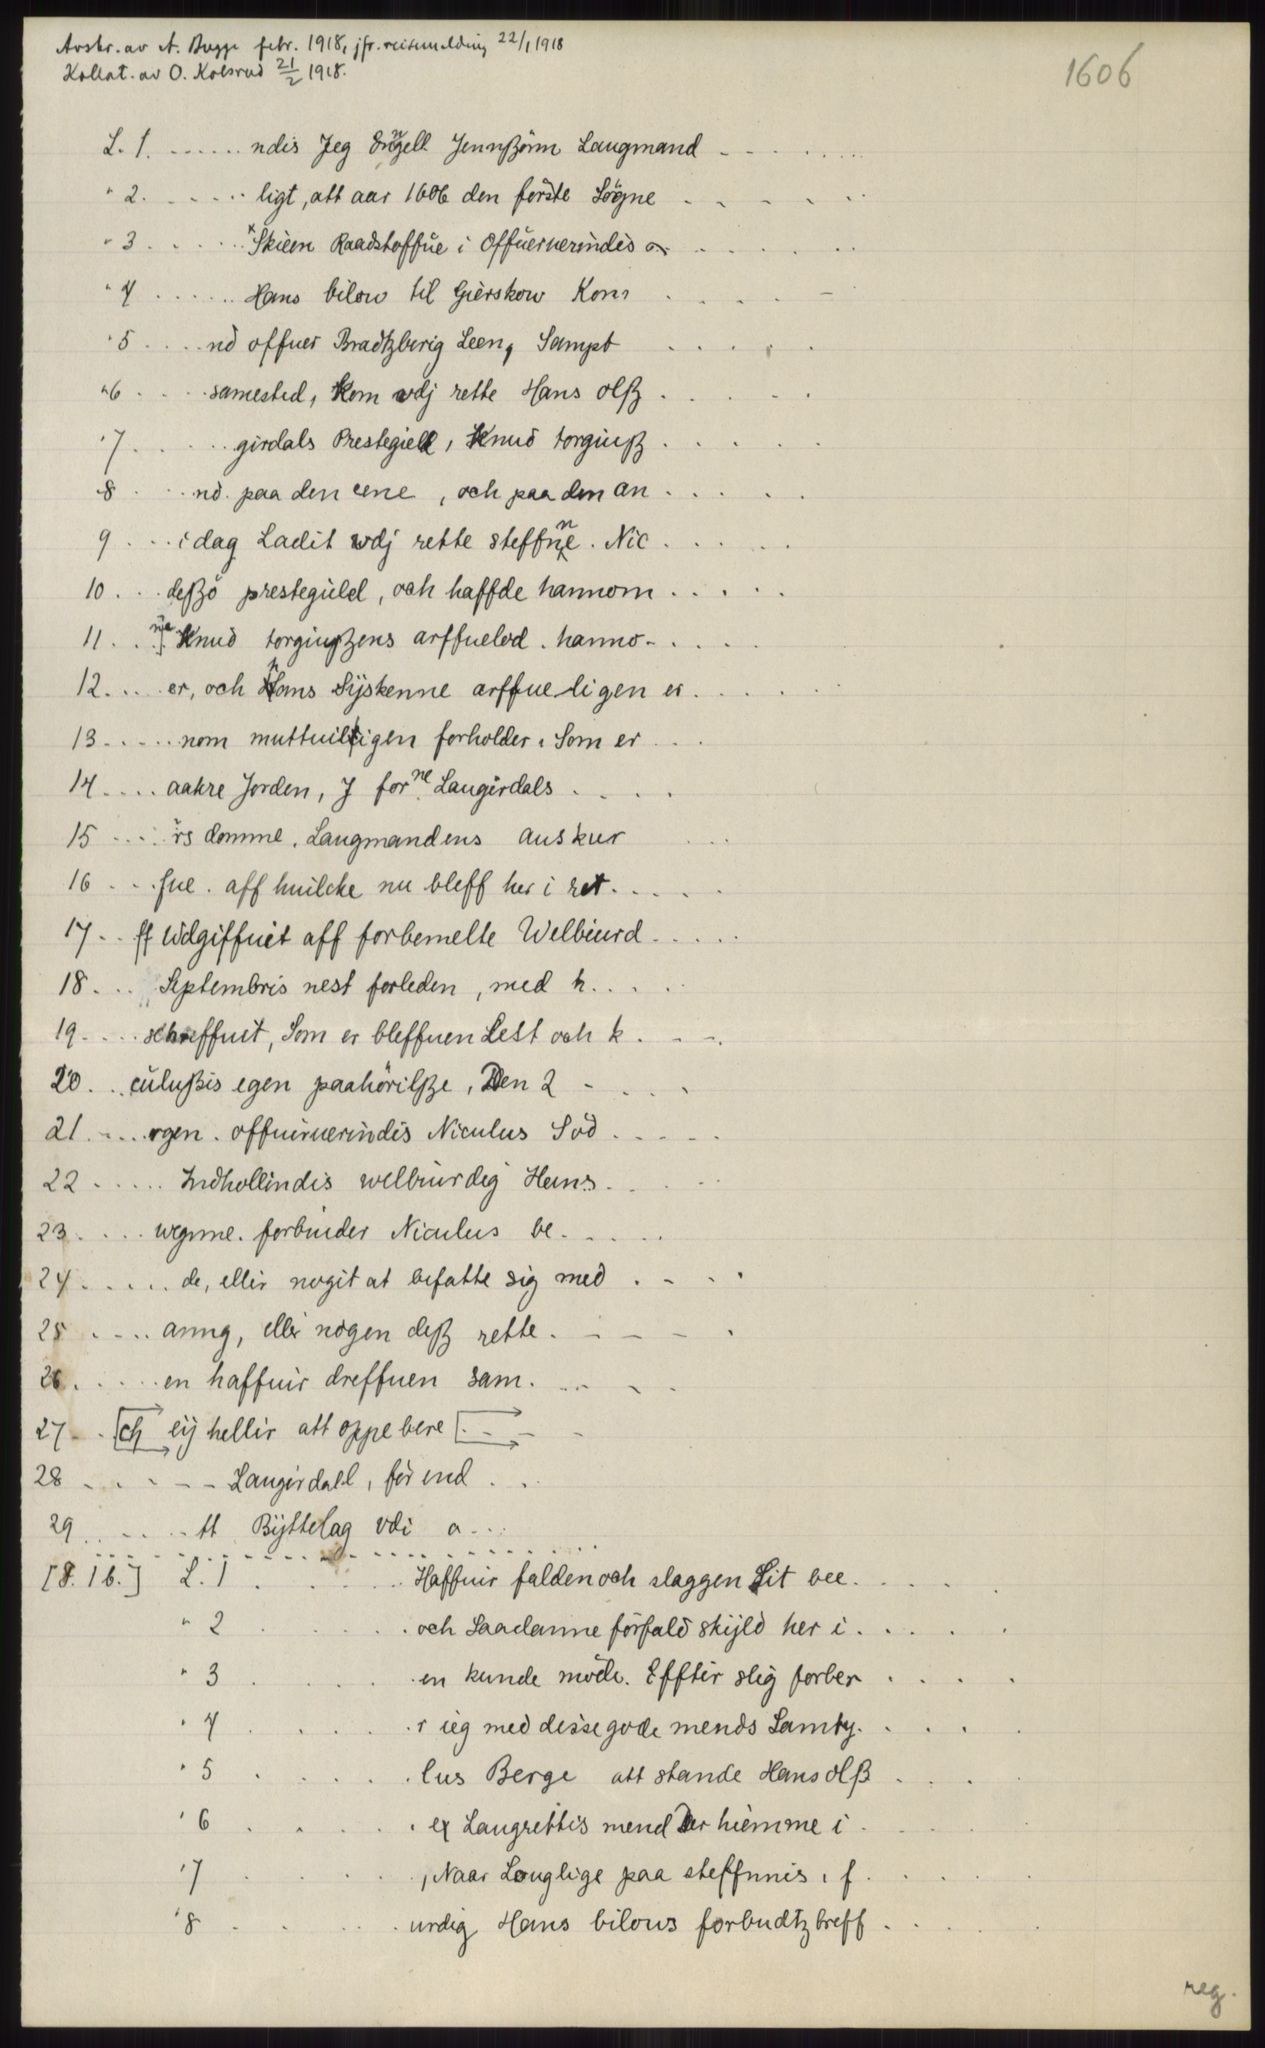 Avskr. av A. Bugge febr. 1918, jfr. reisemelding 22/1 1918
Kollat. av O. Kolsrud 21/2 1918.
1606
L. 1. ...... ndis Jeg Engell Jennßönn Laugmand - - . . . . .
" 2. . - . - . ligt, att aar 1606 den förste Sögne . - . - . .
" 3 . . . . . . Skieen Raadstoffue i Offueruerindis a . . . . .
" 4 . . . . . . Hans bilow til Gierskow Kon . . . . -
" 5 . . . . nd offuer Bradtzberig Leen, Sampt . . . . .
" 6 . . . . samested, Kom vdj rette Hans olß . . . . .
" 7 . . . . . girdals Prestegiell, Knud torgiuß . . . . .
" 8 . . . nd. paa den eene, och paa den an . . . . .
9 . . . i dag Ladit vdj rette steffne. Nic . . . . .
10 . . . deßö prestegield, och haffde hannom . . . . .
11 . . ne] Knud torgiußens arffuelod. hanno - . . . .
12 . . . . er, och Hans Sÿskenne arffueligen er . . . . .
13 - . - . . nom muttuiligen forholder. Som er . . .
14 . . . . aakre Jorden, J forne Laugirdals . . . .
15 - . . . irs domme. Laugmandens auskur . . .
16 . . . fue. aff huilcke nu bleff her i ret . . . . .
17 . . ff Udgiffuit aff forbemelte Welbiurd . . . . .
18 . . . Septembris nest forleden, med h . . . .
19 . . . . schreffuit, Som er bleffuen Lest och k . - - .
20 . . culußis egen paahörilße, Den 2 - . . .
21 . . . . rgen. offuiruerindis Niculus Söd . . . . .
22 . . . . . Indhollindis welbiurdig Hans . . . .
23 . . . . wegnne. forbinder Niculus be . . . . .
24 . . . . . de, ellir nogit at befatte sig med . - . .
25 . - . . anng, eller nogen deß rette . - - - .
26 . . . . . en haffuir dreffuen sam . . - . .
27 - . [ch eij hellir att oppebere [. - - -
28 - . . - - Laugirdall, för end . . .
29 . . . - tt Bÿttelag vdi a . . .
[S. 1 b.] L. 1 . . . . . Haffuir falden och slaggen Lit bee . . . . .
" 2 . . . . . och Saadanne forfald skijld her i . . . . .
" 3 . . . . . en kunde möde. Effter slig forber . . . .
" 4 . . . . . r ieg med desse gode mends Samty . . . . .
" 5 . . . . . lus Berge att stande Hans olß . . . .
" 6 . . . . . ex Laugrettis mend Der hiemme i . . . . .
" 7 . . . . . , Naar Louglige paa steffnnis, f . . . . .
" 8 . . . . . urdig Hans bilous forbudtzbreff . . . . .
reg.